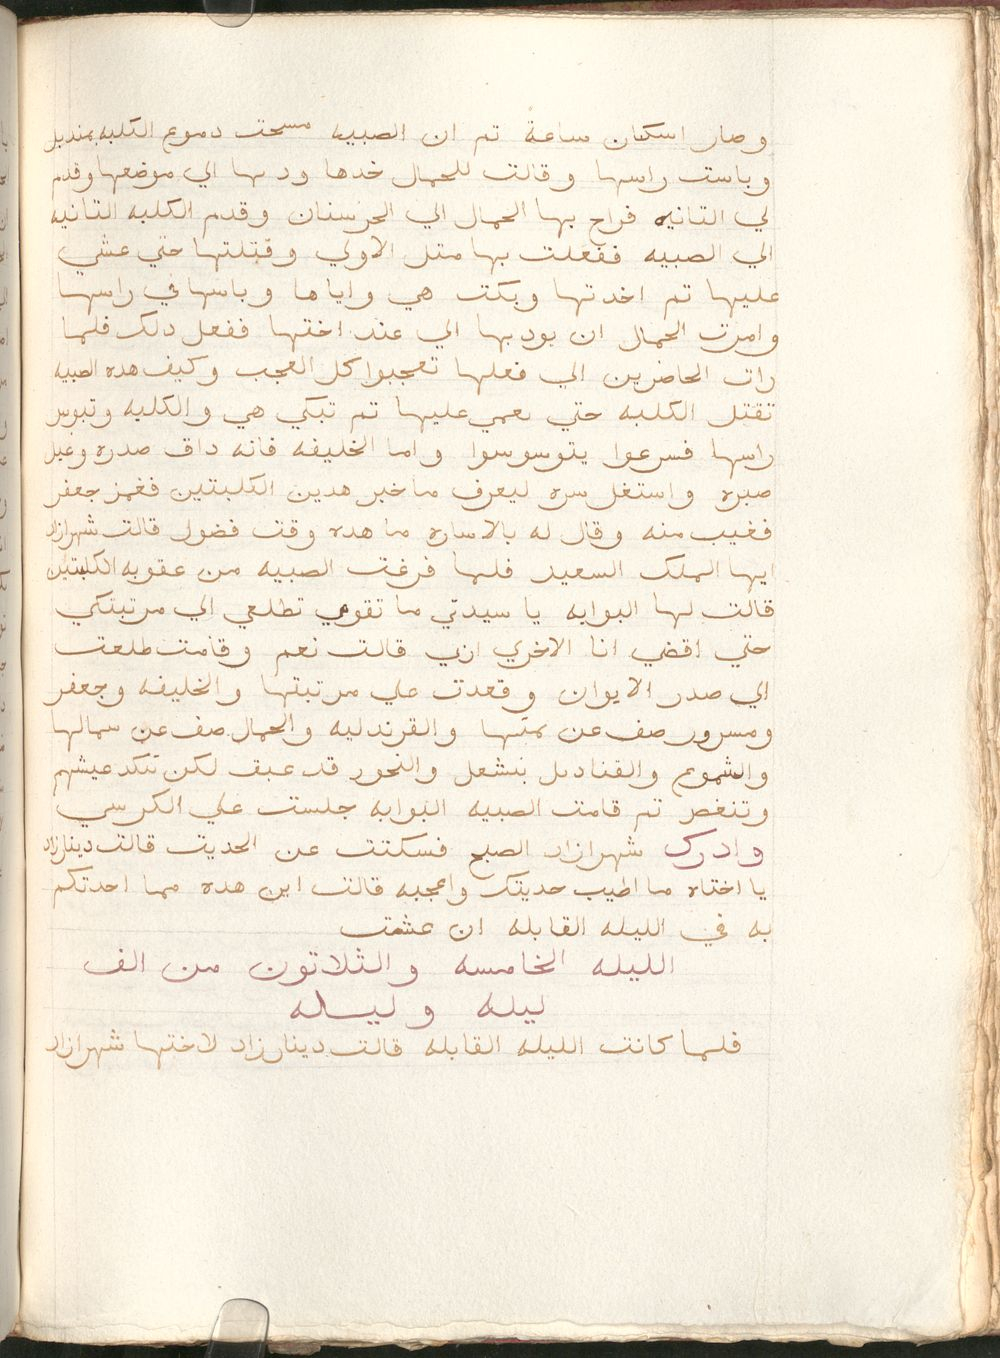 وصار اسكان ساعة تم ان الصبيه مسحت دموع الكلبه بمنديل
وباست راسها وقالت للحمال خدها ودبها الي موضعها وقدم
لي التانيه فراح بها الحمال الي الخرستان وقدم الكلبه التانيه
الي الصبيه ففعلت بها متل الاولي وقتلتها حتي غشي
عليها تم اخدتها وبكت هي واياها وباسها في راسها
وامرت الحمال ان يوديها الي عند اختها ففعل دلك فلما
رات الحاضرين الي فعلها تعجبوا كل العجب وكيف هده الصبيه
تقتل الكلبه حتي يغمي عليها تم تبكي هي والكلبه وتبوس
راسها فسرعوا يتوسوسوا واما الخليفه فانه داق صدره وعيل
صبره واستغل سره ليعرف ما خبر هدين الكلبتين فغمز جعفر
فغيب منه وقال له بالاساره ما هده وقت فضول قالت شهرازاد
ايها الملك السعيد فلما فرغت الصبيه من عقوبه الكلبتين
قالت لها البوابه يا سيدتي ما تقومي تطلعي الي مرتبتكي
حتي اقضي انا الاخري اربي قالت نعم وقامت طلعت
الي صدر الايوان وقعدت علي مرتبتها والخليفه وجعفر
ومسرور صف عن يمينها والقرندليه والحمال صف عن سمالها
والشموع والقناديل بتشعل والبخور قد عبق لكن تنكد عيشهم
وتنغص تم قامت الصبيه البوابه جلست علي الكرسي
وادرك شهرازاد الصبح فسكتت عن الحديت قالت دينارزاد
يا اختاه ما اطيب حديتك واعجبه قالت اين هده مما احدتكم
به في الليله القابله ان عشت
الليله الخامسه والثلاتون من الف
ليله وليله
فلما كانت الليله القابله قالت دينارزاد لاختها شهرازاد